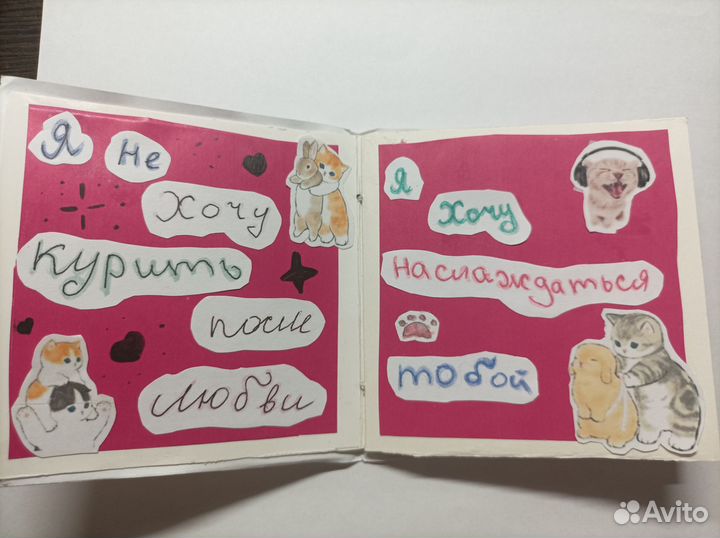 Я не
хочу
курить
после
любви
Я
хочу
наслаждаться
тобой
Avito